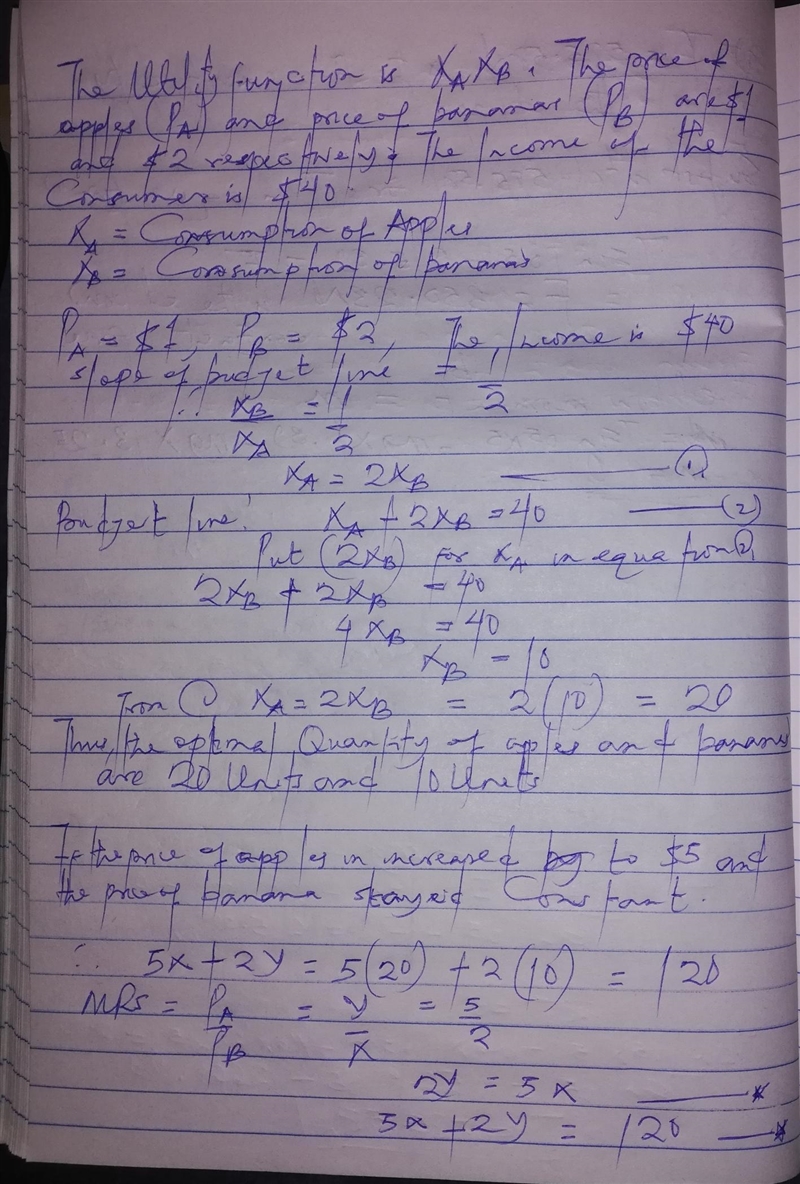 The Utility function is XA XB. The price of
apples (PA) and price of bananas (PB) are $1
and $2 respectively; The Income of the
Consumer is $40.
XA = Consumption of Apples
XB = Consumption of bananas
PA = $1, PB = $2, The Income is $40
slope of budget line = 1/2
∴ XB/XA = 1/2
XA = 2XB ——— (1)
Budget line: XA + 2XB = 40 ——— (2)
Put (2XB) for XA in equation 2,
2XB + 2XB = 40
4XB = 40
XB = 10
From (1) XA = 2XB = 2(10) = 20
Thus, the optimal Quantity of apples and bananas
are 20 Units and 10 Units
If the price of apples in increased by to $5 and
the price of banana stayed Constant.
∴ 5x + 2y = 5(20) + 2(10) = 120
MRS = PA/PB = y/x = 5/2
2y = 5x ——— *
5x + 2y = 120 ——— *